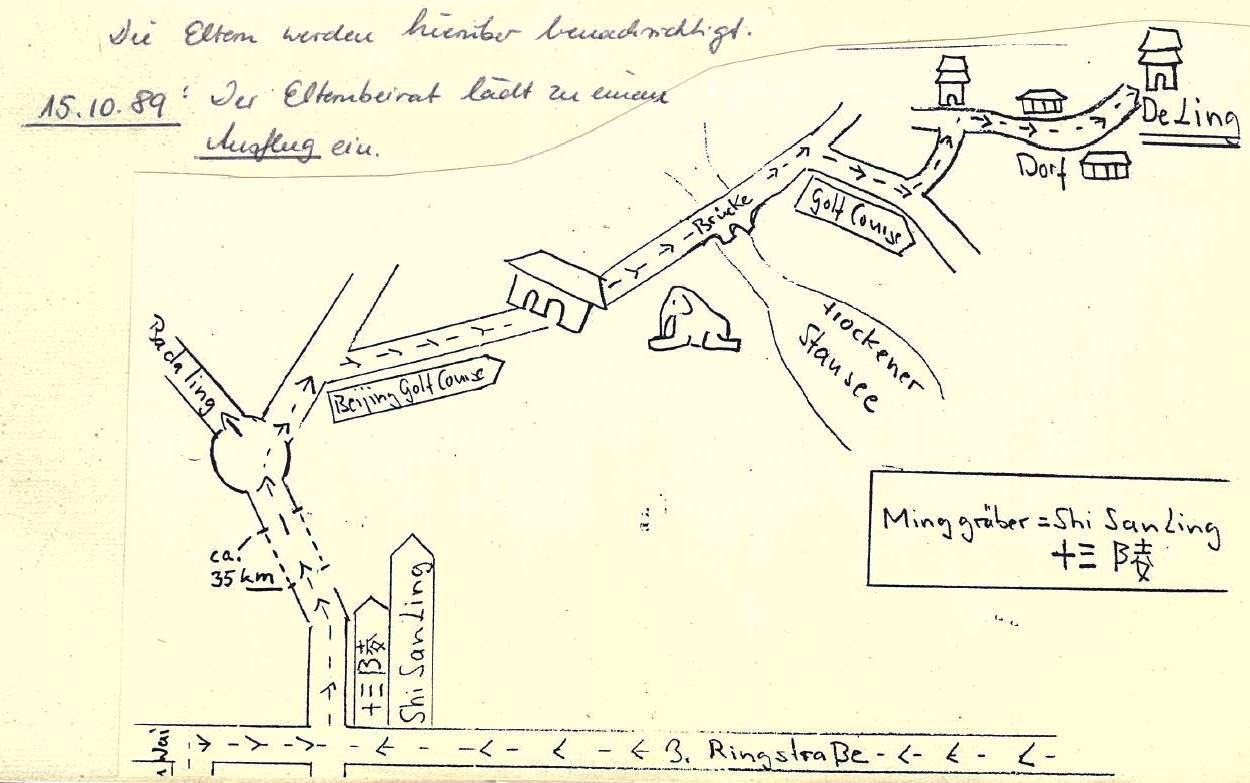 Die Eltern werden hierüber benachrichtigt.
15.10.89: Der Elternbeirat lädt zu einem
Ausflug ein.
DeLing
Dorf
Brücke
Golf Course
trockener
Stausee
Badaling
Beijing Golf Course
Minggräber = Shi San Ling
十三陵
ca.
35 km
十三陵
Shi San Ling
3. Ringstraße